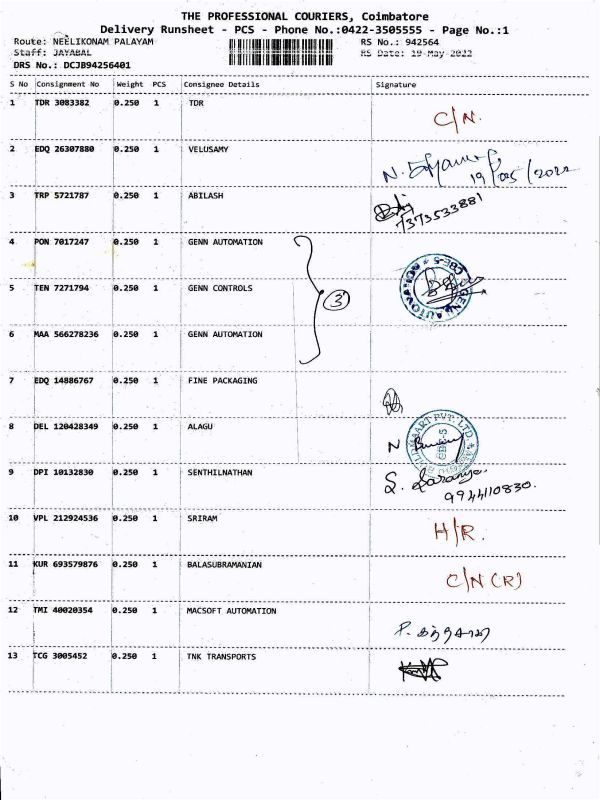 THE PROFESSIONAL COURIERS, Coimbatore
Delivery Runsheet - PCS - Phone No.:0422-3505555 - Page No.:1
Route: NEELIKONAM PALAYAM RS No.: 942564
Staff: JAYABAL RS Date: 19-May-2022
DRS No.: DCJB94256401
S No Consignment No Weight PCS Consignee Details Signature
1 TDR 3083382 0.250 1 TDR C/N.
2 EDQ 26307880 0.250 1 VELUSAMY 19/05/2022
3 TRP 5721787 0.250 1 ABILASH 7373533881
4 PON 7017247 0.250 1 GENN AUTOMATION
5 TEN 7271794 0.250 1 GENN CONTROLS 3 GENN AUTOMATION CBE-5
6 MAA 566278236 0.250 1 GENN AUTOMATION
7 EDQ 14886767 0.250 1 FINE PACKAGING
8 DEL 120428349 0.250 1 ALAGU N PVT. LTD. CBE-5
9 DPI 10132830 0.250 1 SENTHILNATHAN S. Saranya. 9944110830.
10 VPL 212924536 0.250 1 SRIRAM H/R.
11 KUR 693579876 0.250 1 BALASUBRAMANIAN C/N (R)
12 TMI 40020354 0.250 1 MACSOFT AUTOMATION
13 TCG 3005452 0.250 1 TNK TRANSPORTS